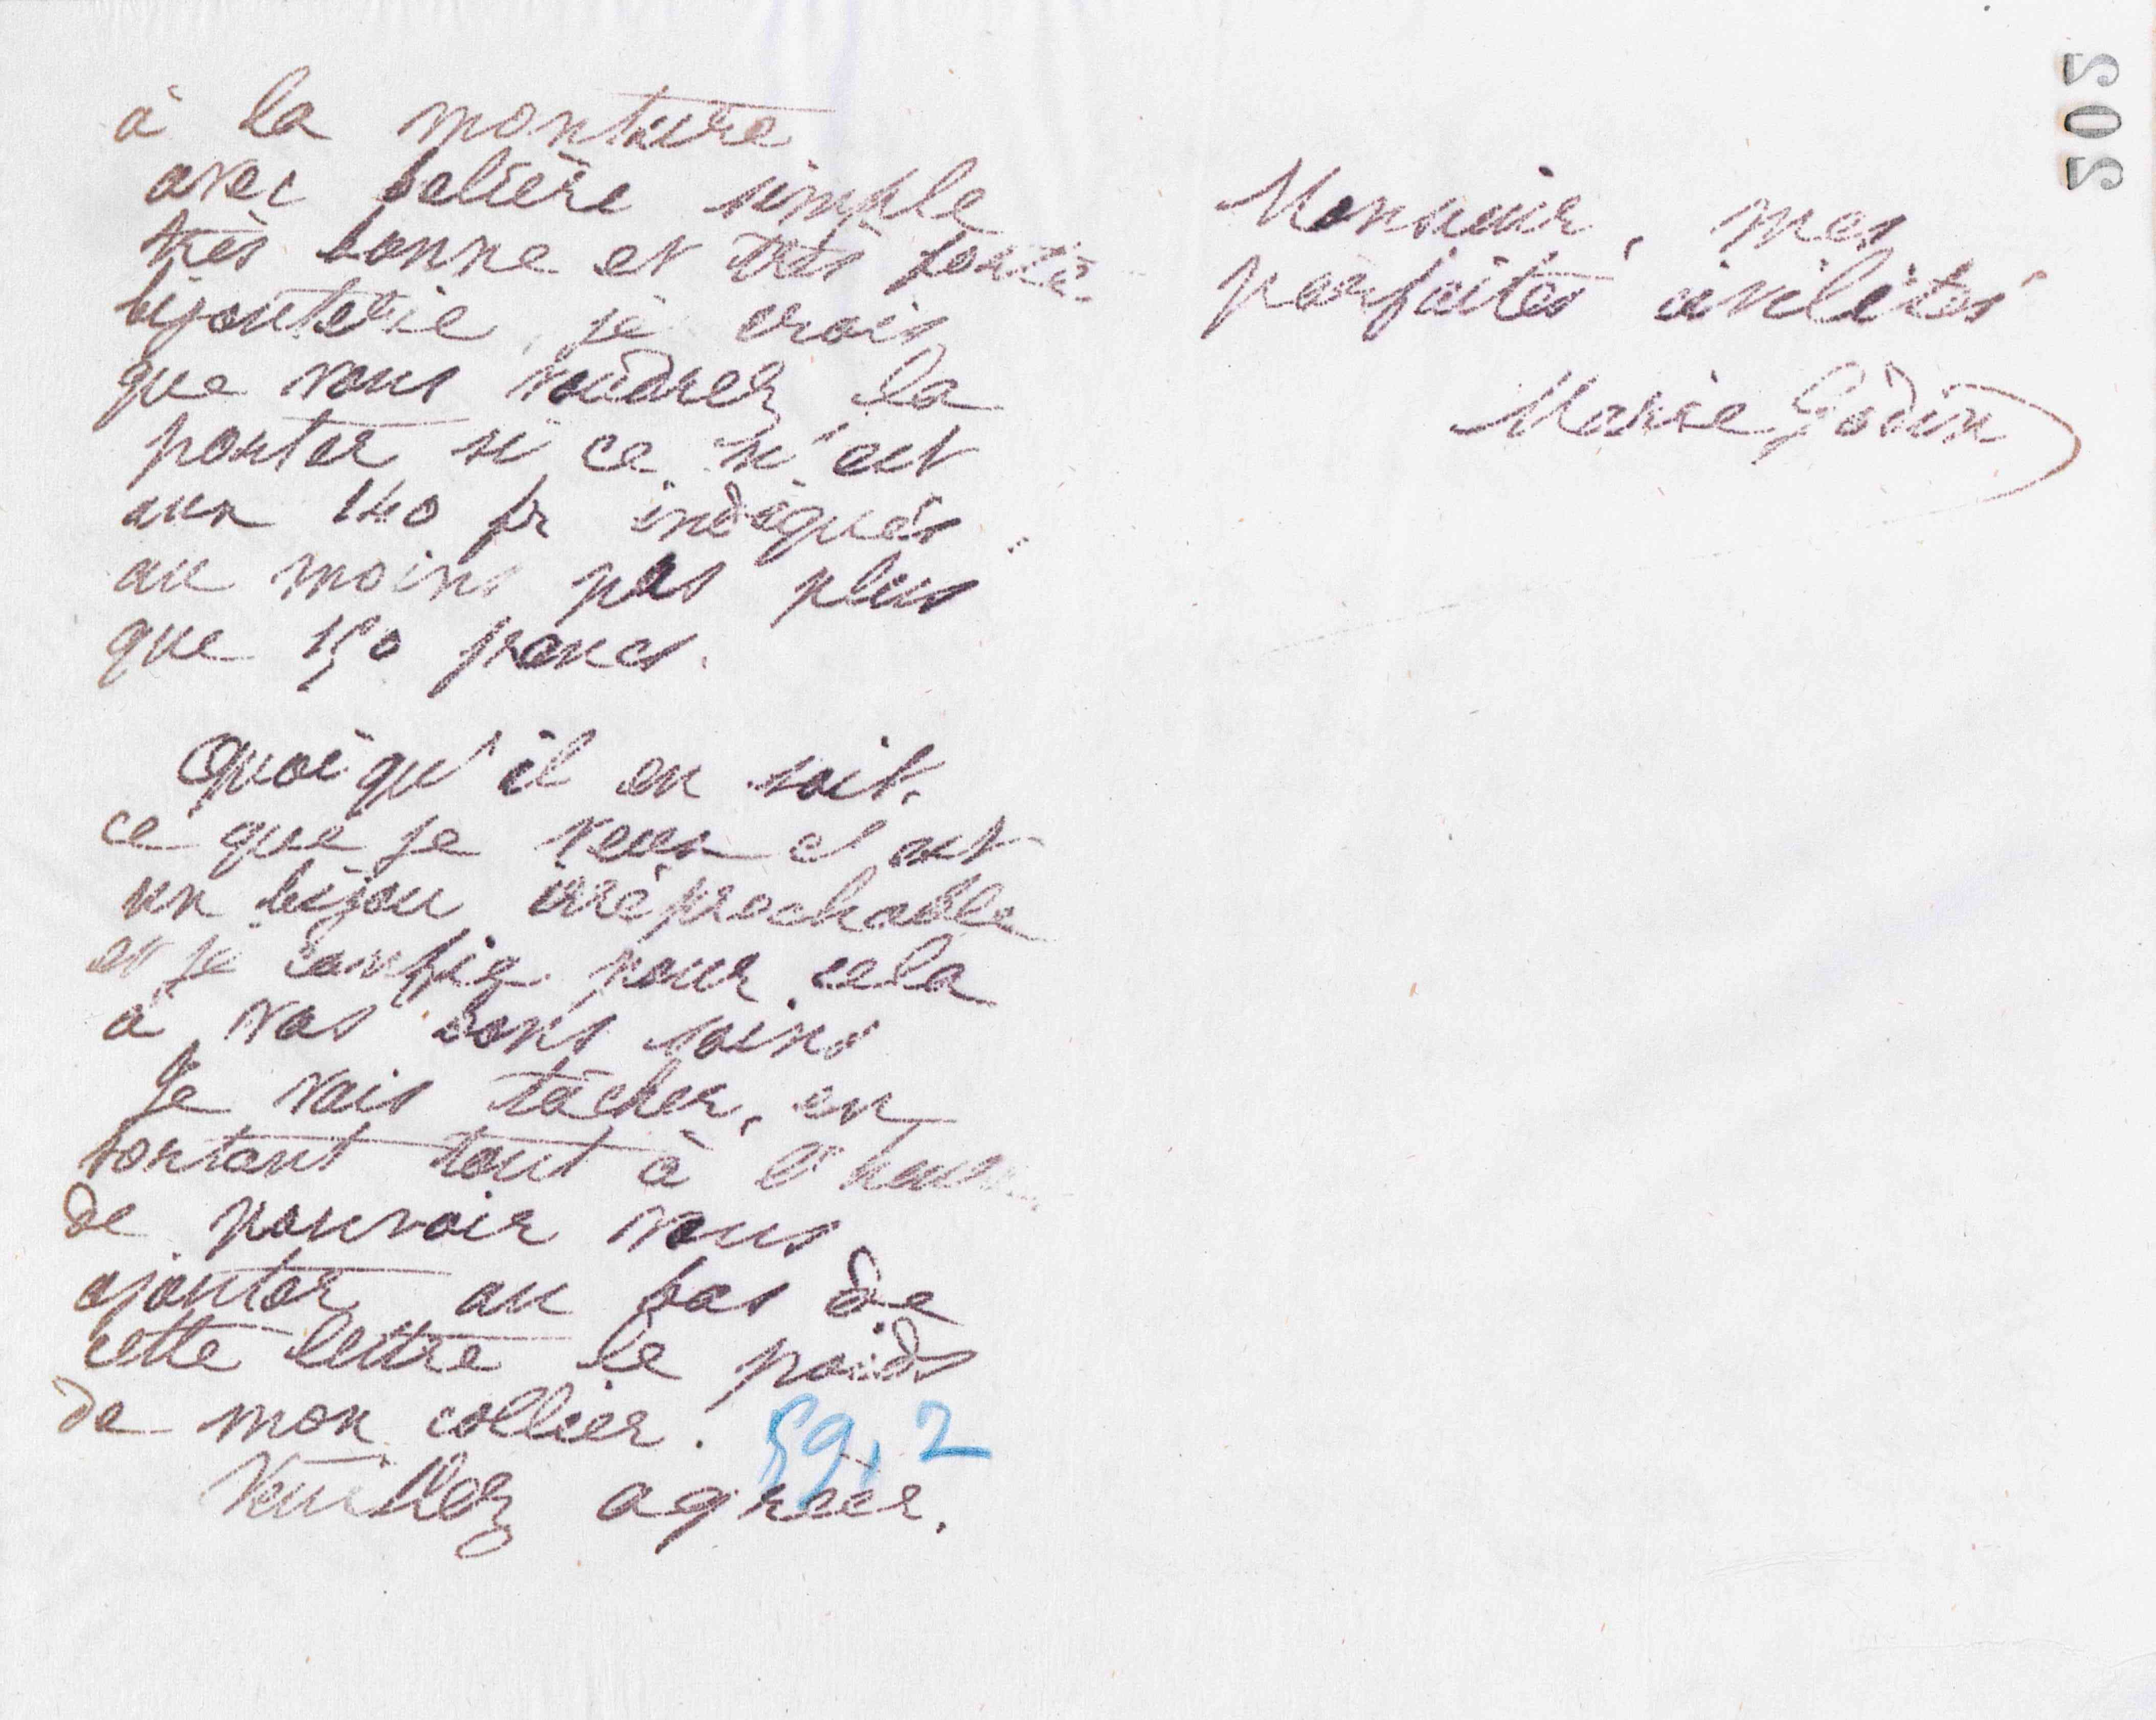 à la monture
avec belière simple
très bonne et très forte
bijouterie, je crois
que vous voudrez la
porter si ce n'est
aux 140 fr indiqués
au moins pas plus
que 150 francs.
Quoiqu'il en soit,
ce que je veux c'est
un bijou irréprochable
et je confie pour cela
à vos bons soins
Je vais tâcher, en
sortant tout à l'heure
de pouvoir vous
ajouter au bas de
cette lettre le poids
de mon collier. 59,2
Veuillez agréer,
Monsieur, mes
parfaites civilités
Marie Godin
505